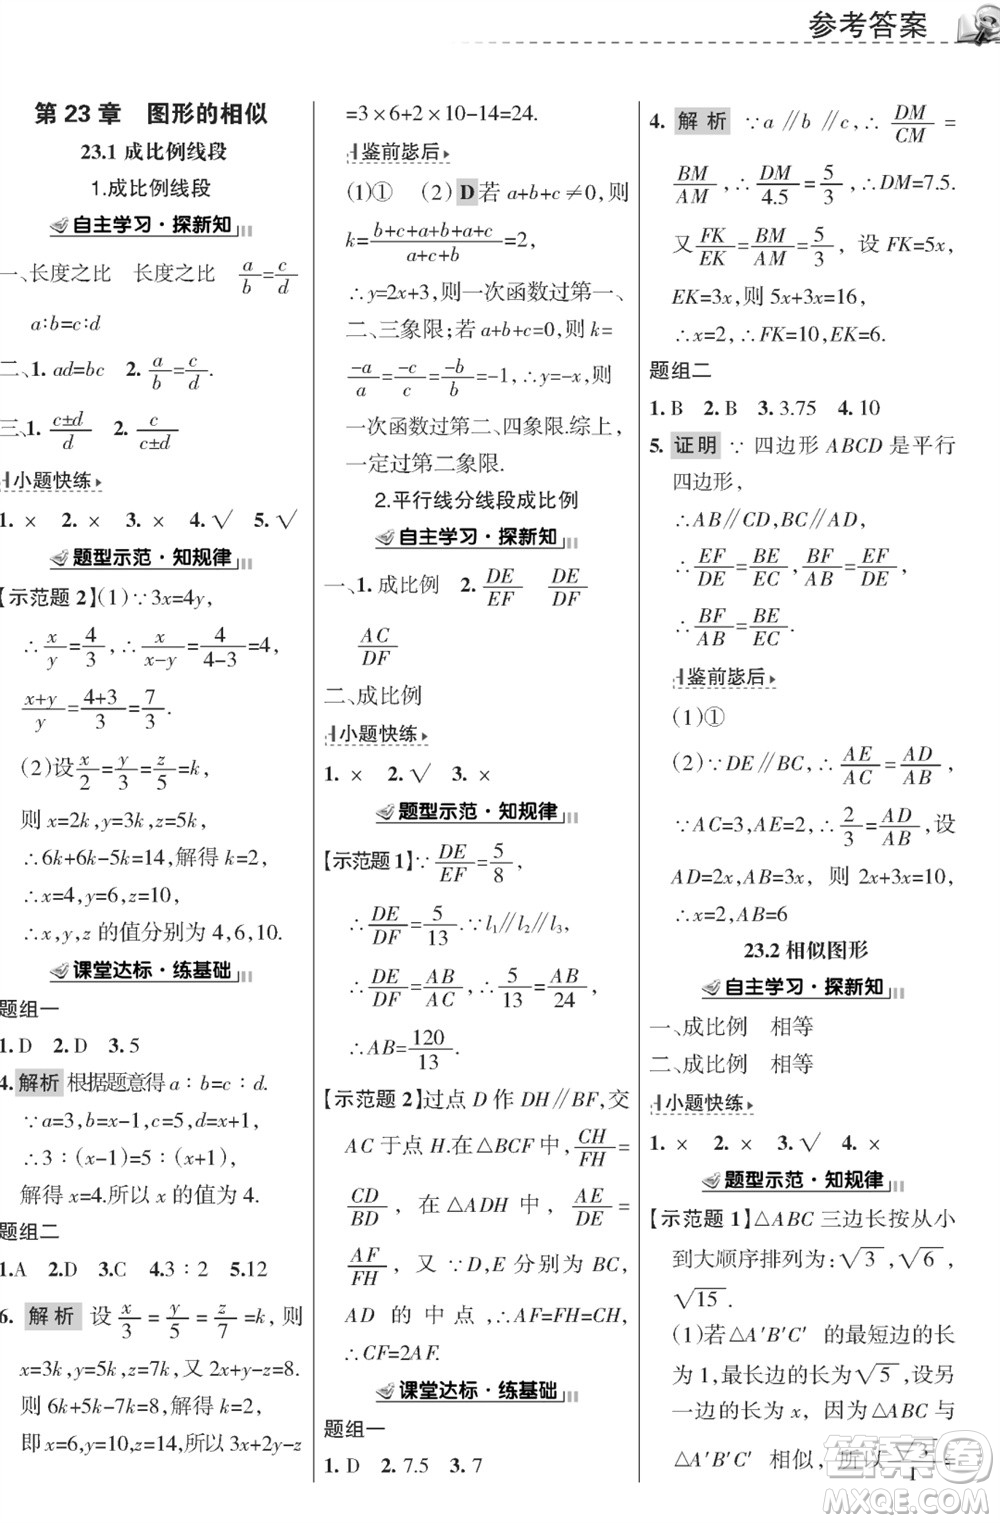 参考答案
第 23 章　图形的相似
23.1 成比例线段
1.成比例线段
自主学习·探新知
一、长度之比　长度之比　a/b=c/d
a∶b=c∶d
二、1. ad=bc　2. a/b=c/d.
三、1. (c±d)/d　2. c/(c±d)
小题快练
1. ×　2. ×　3. ×　4. √　5. √
题型示范·知规律
【示范题 2】(1)∵3x=4y,
∴x/y=4/3,∴x/(x-y)=4/(4-3)=4,
(x+y)/y=(4+3)/3=7/3.
(2)设x/2=y/3=z/5=k,
则 x=2k,y=3k,z=5k,
∴6k+6k-5k=14,解得 k=2,
∴x=4,y=6,z=10,
∴x,y,z 的值分别为 4,6,10.
课堂达标·练基础
题组一
1. D　2. D　3. 5
4. 解析 根据题意得 a∶b=c∶d.
∵a=3,b=x-1,c=5,d=x+1,
∴3∶(x-1)=5∶(x+1),
解得 x=4.所以 x 的值为 4.
题组二
1.A　2.D　3.C　4.3∶2　5.12
6. 解析 设 x/3=y/5=z/7=k,则
x=3k,y=5k,z=7k,又 2x+y-z=8.
则 6k+5k-7k=8,解得 k=2,
即 x=6,y=10,z=14,所以 3x+2y-z
=3×6+2×10-14=24.
鉴前毖后
(1)①　(2) D 若 a+b+c≠0,则
k=(b+c+a+b+a+c)/(a+c+b)=2,
∴y=2x+3,则一次函数过第一、
二、三象限;若 a+b+c=0,则 k=
-a/a=-c/c=-b/b=-1,∴y=-x,则
一次函数过第二、四象限.综上,
一定过第二象限.
2.平行线分线段成比例
自主学习·探新知
一、1. 成比例　2. DE/EF　DE/DF
AC/DF
二、成比例
小题快练
1. ×　2. √　3. ×
题型示范·知规律
【示范题 1】∵DE/EF=5/8,
∴DE/DF=5/13.∵l₁∥l₂∥l₃,
∴DE/DF=AB/AC,∴5/13=AB/24,
∴AB=120/13.
【示范题 2】过点 D 作 DH∥BF,交
AC 于点 H.在△BCF 中,CH/FH=
CD/BD,在△ADH 中,AE/DE=
AF/FH,又∵D,E分别为BC,
AD的中点,∴AF=FH=CH,
∴CF=2AF.
课堂达标·练基础
题组一
1. D　2. 7.5　3. 7
4. 解析 ∵a∥b∥c,∴DM/CM=
BM/AM,∴DM/4.5=5/3,∴DM=7.5.
又FK/EK=BM/AM=5/3,设 FK=5x,
EK=3x,则 5x+3x=16,
∴x=2,∴FK=10,EK=6.
题组二
1. B　2. B　3. 3.75　4. 10
5. 证明 ∵四边形 ABCD 是平行
四边形,
∴AB∥CD,BC∥AD,
∴EF/DE=BE/EC,BF/AB=EF/DE,
∴BF/AB=BE/EC.
鉴前毖后
(1)①
(2)∵DE∥BC,∴AE/AC=AD/AB,
∵AC=3,AE=2,∴2/3=AD/AB,设
AD=2x,AB=3x,则 2x+3x=10,
∴x=2,AB=6
23.2 相似图形
自主学习·探新知
一、成比例　相等
二、成比例　相等
小题快练
1. ×　2. ×　3. √　4. ×
题型示范·知规律
【示范题 1】△ABC 三边长按从小
到大顺序排列为:√3,√6,
√15.
(1)若△A′B′C′的最短边的长
为 1,最长边的长为√5,设另
一边的长为 x,因为△ABC 与
△A′B′C′相似,所以√3/1=
答案圈
MXQE.COM